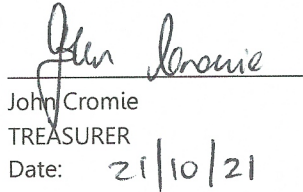 John Cromie
John Cromie
TREASURER
Date: 21/10/21